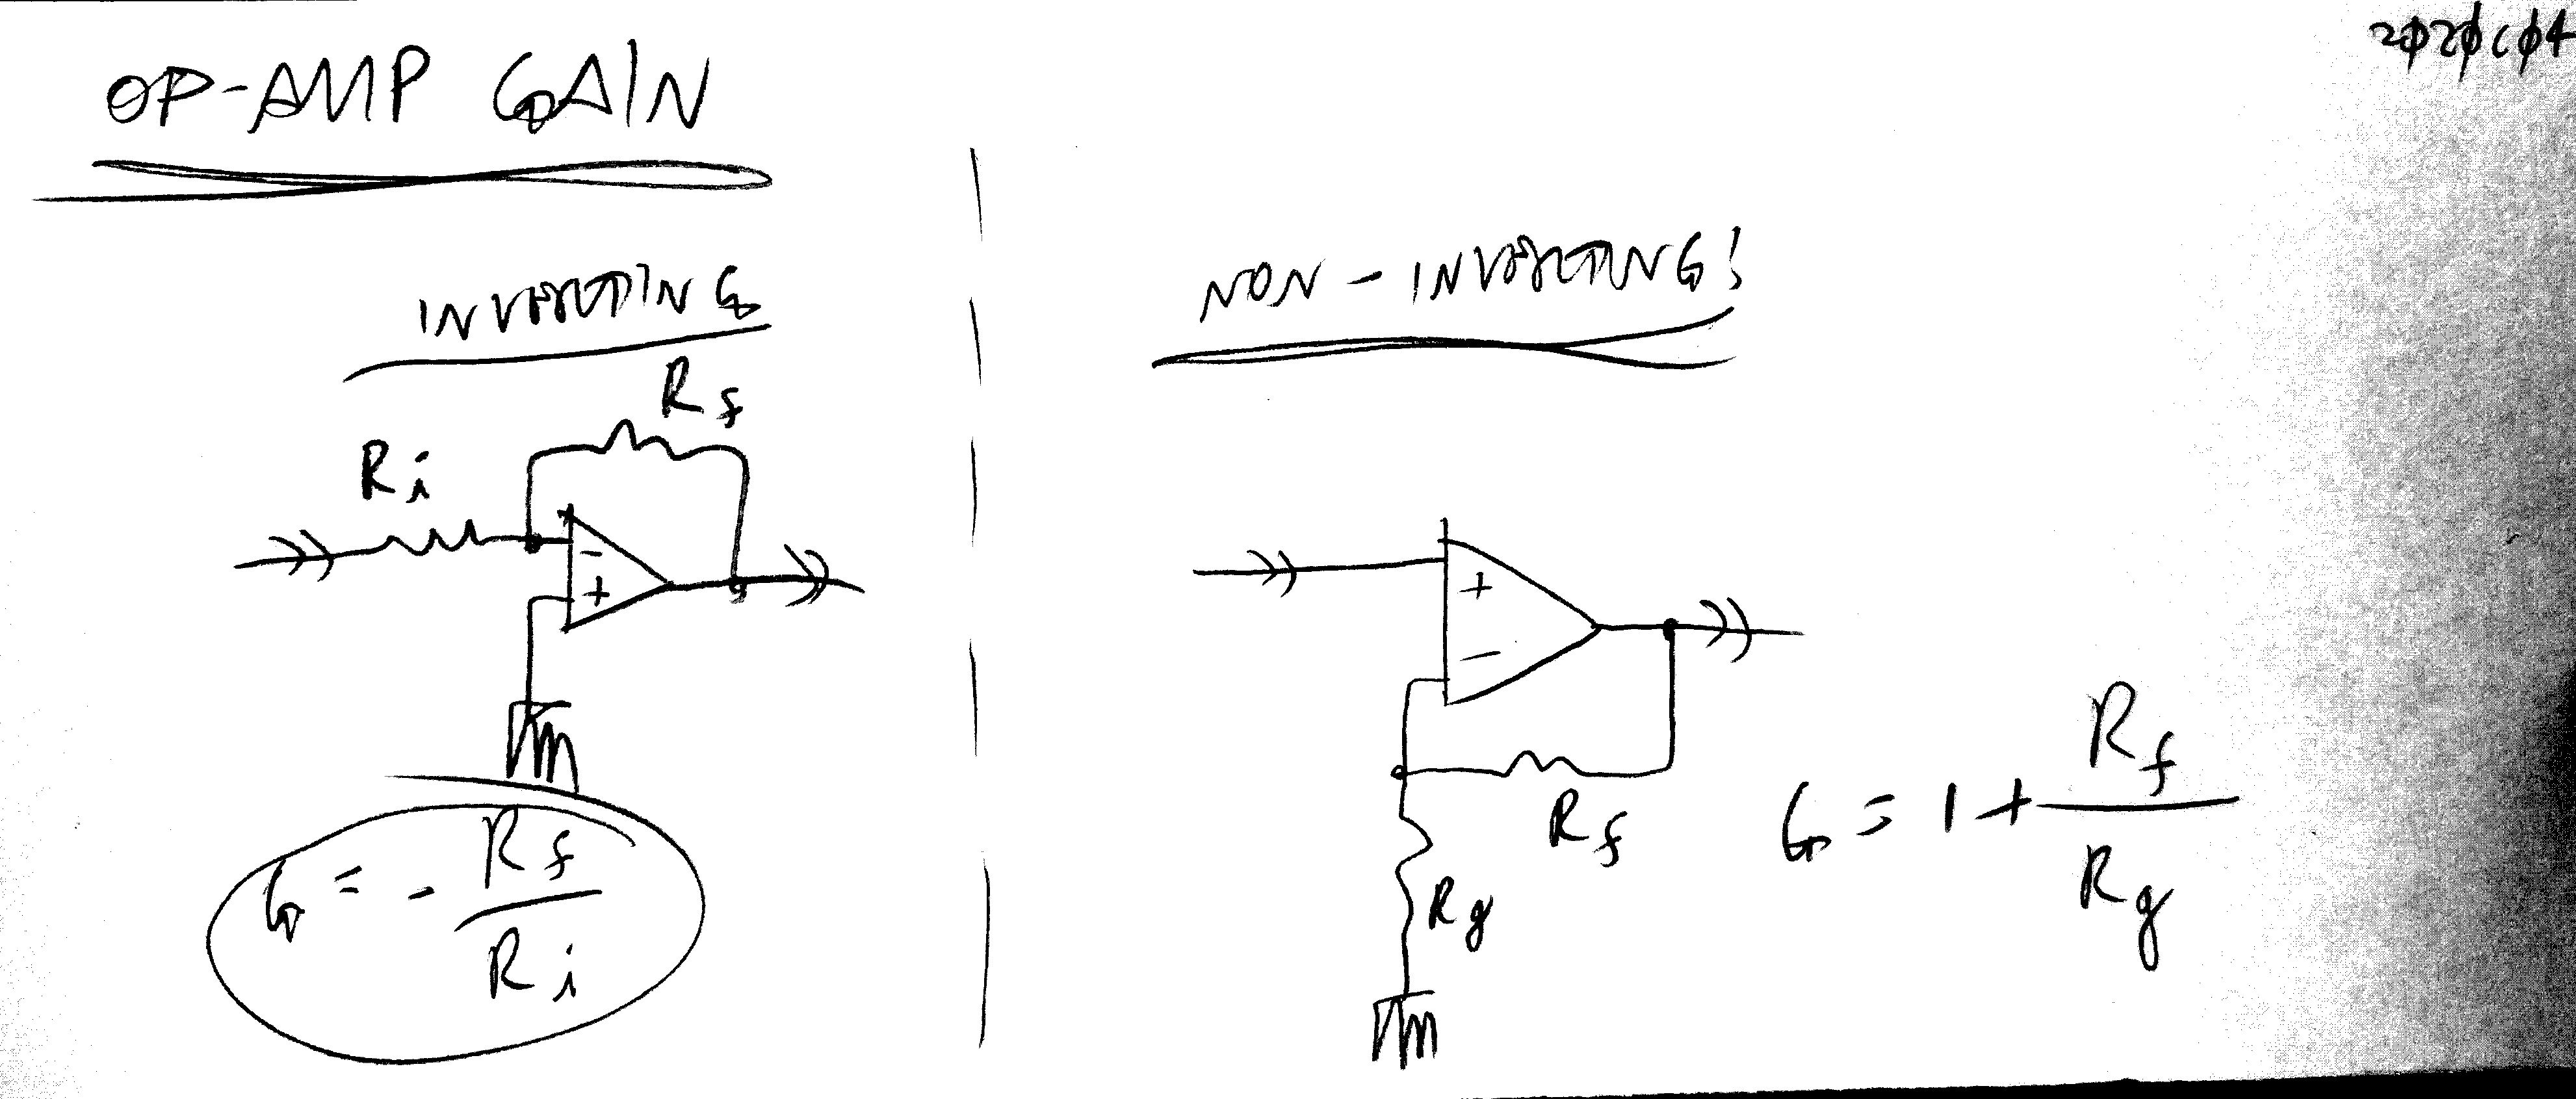 2020C04
OP-AMP GAIN
INVERTING
Rf
Ri
-
+
G = - Rf / Ri
NON-INVERTING!
+
-
Rf
Rg
G = 1 + Rf / Rg